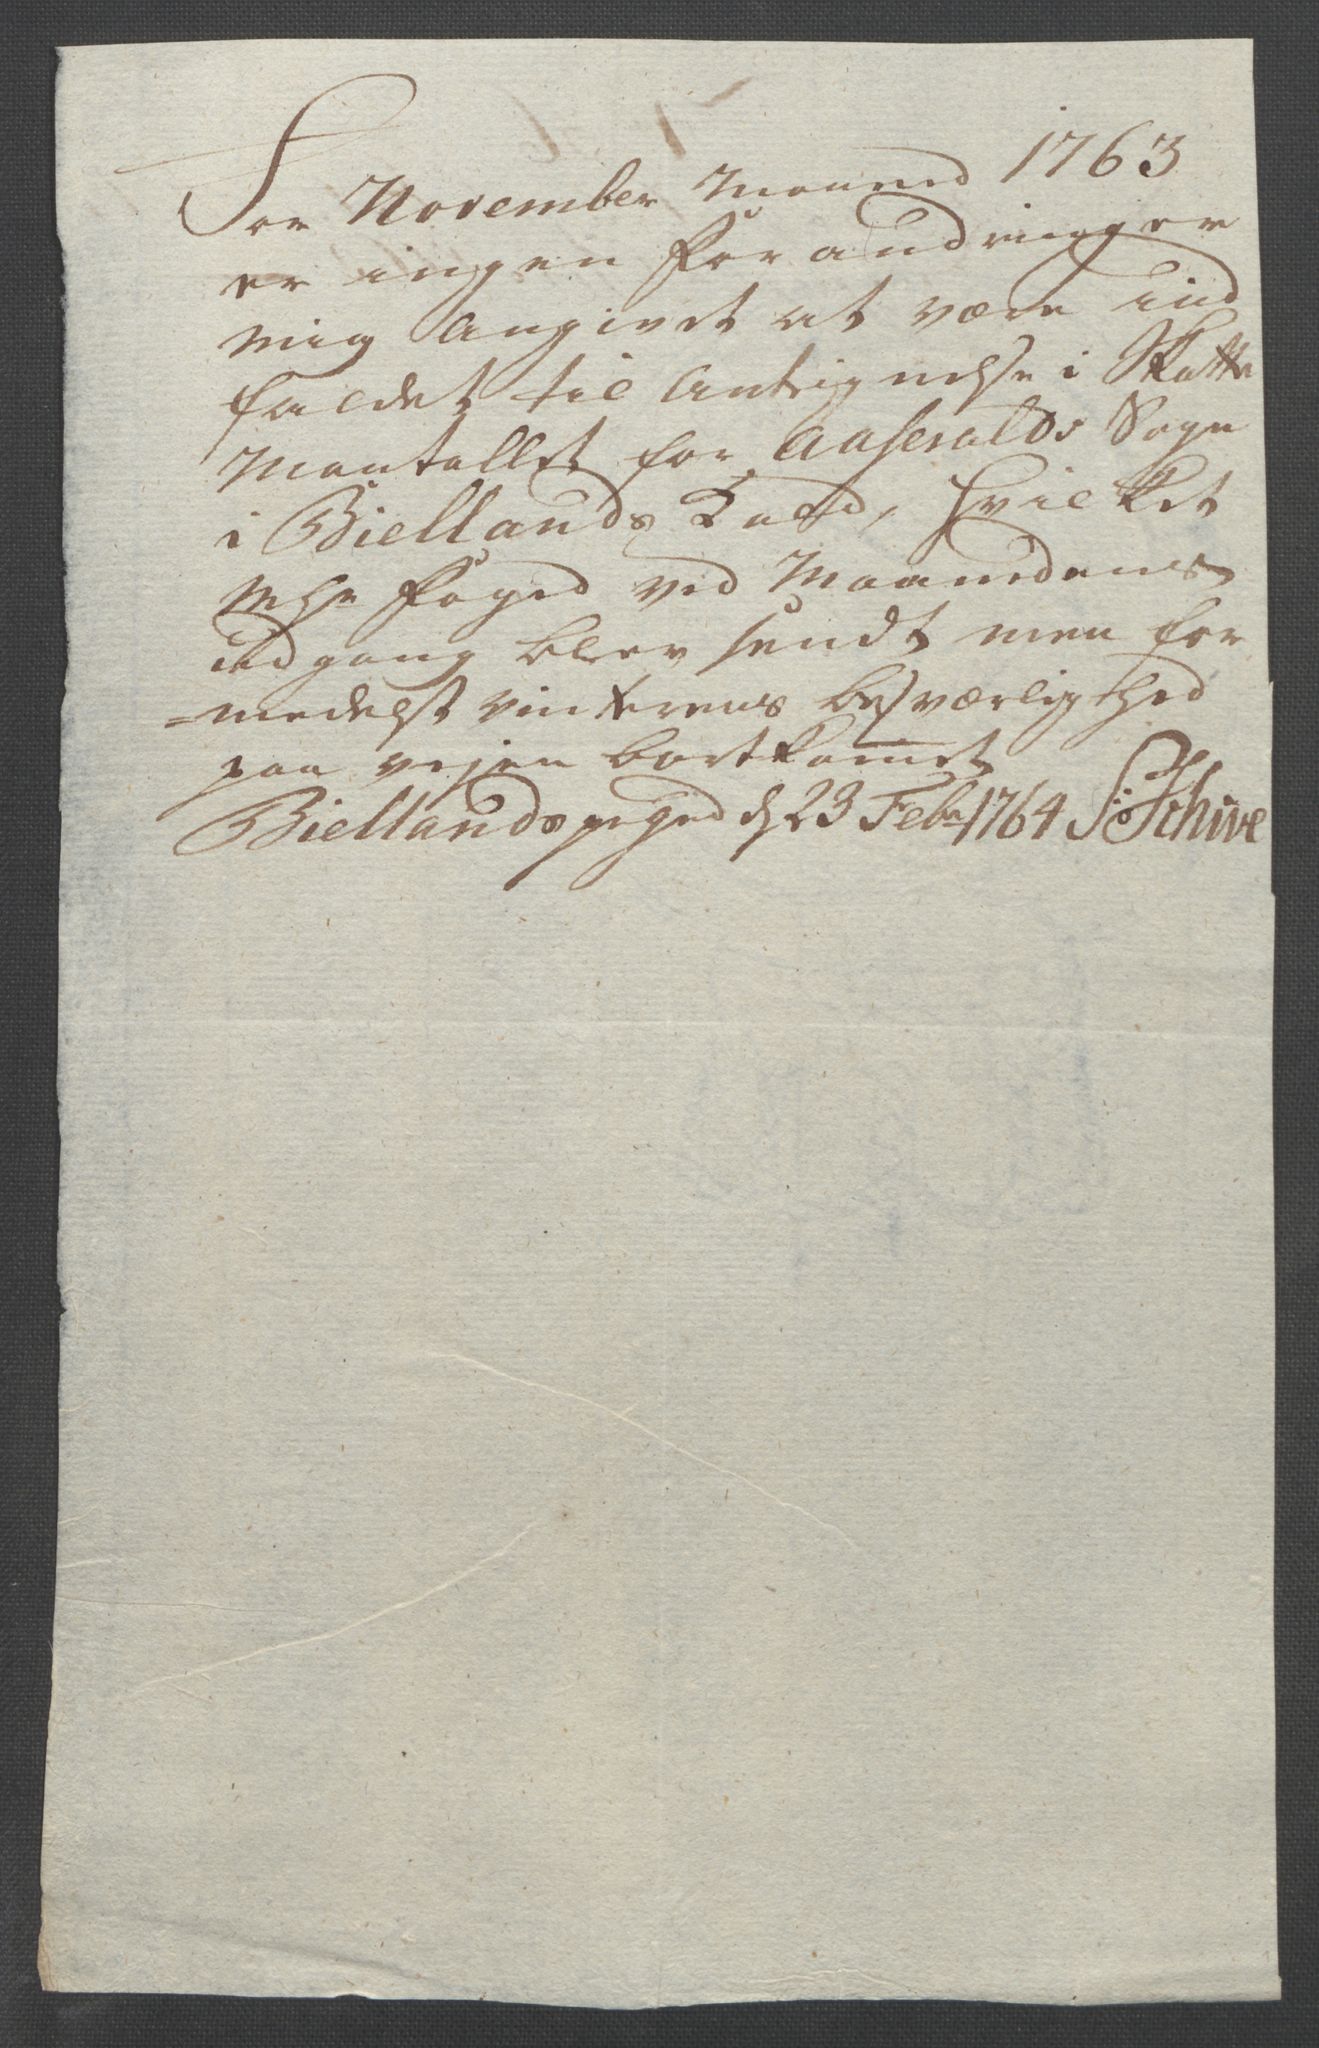 For November Maaned 1763
er ingen Forandringer
mig Angivet at være ind
faldet til Antegnelse i Skatte
Mantallet for Aaseralds Sogn
i Biellands Kald, hvilket
Mhr Foged ved Maanedens
udgang blev sendt men for
=medelst vinterens besværlighed
paa vejen bortkommet
Biellands pgrd d 23 Febr 1764 S: Schive